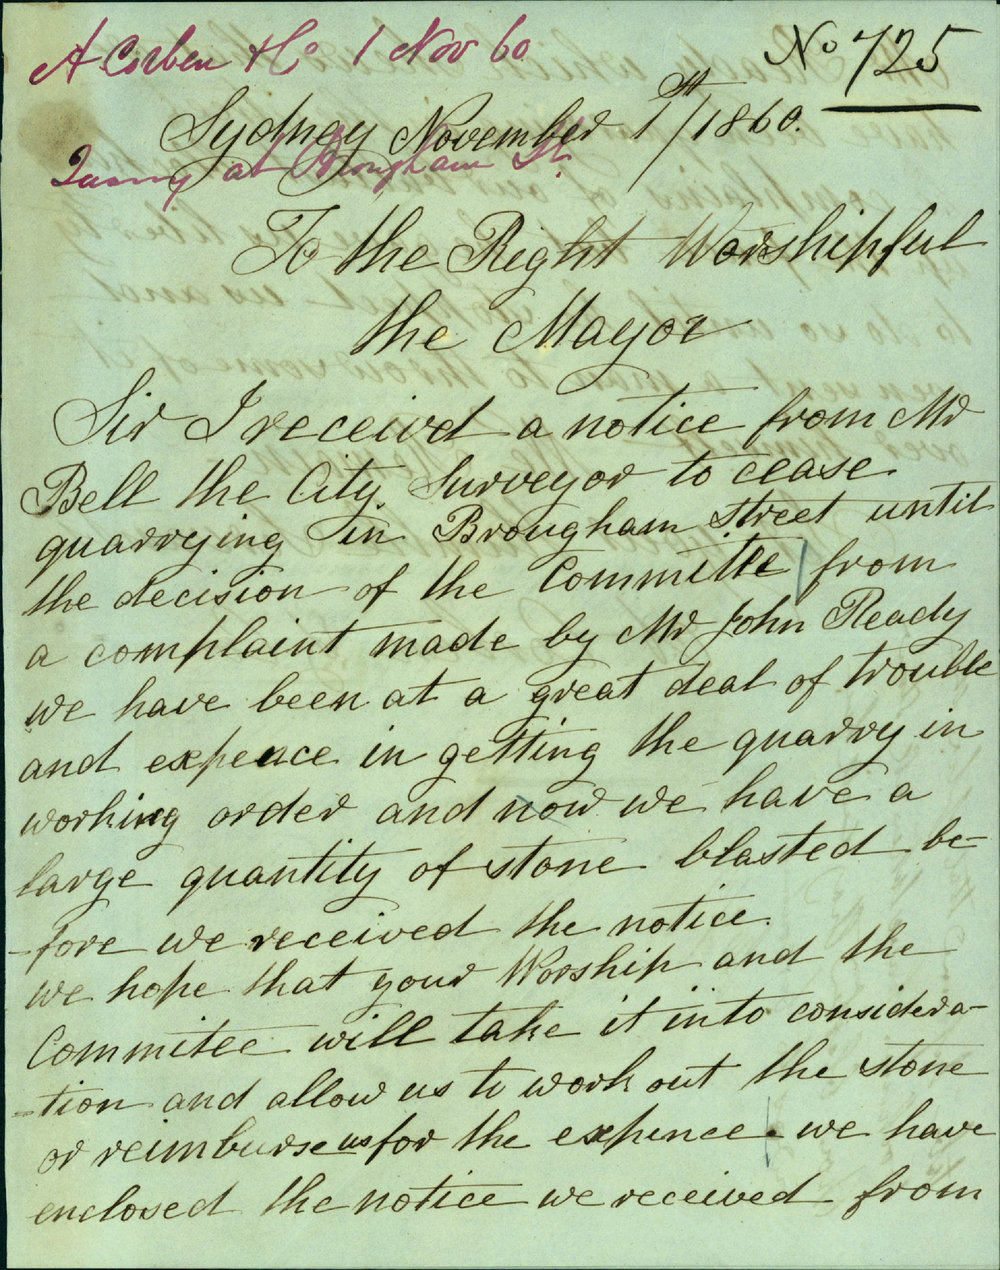 A Corben & Co 1 Nov 60
No 725
Sydney November 1st/1860.
Quarry at Brougham St.
To the Right Worshipful
the Mayor
Sir I received a notice from Mr
Bell the City Surveyor to cease
quarrying in Brougham Street until
the decision of the Committee from
a complaint made by Mr John Ready
we have been at a great deal of trouble
and expence in getting the quarry in
working order and now we have a
large quantity of stone blasted be-
-fore we received the notice.
we hope that your Worship and the
Commitee will take it into considera-
-tion and allow us to work out the stone
or reimburse us for the expence. we have
enclosed the notice we received from